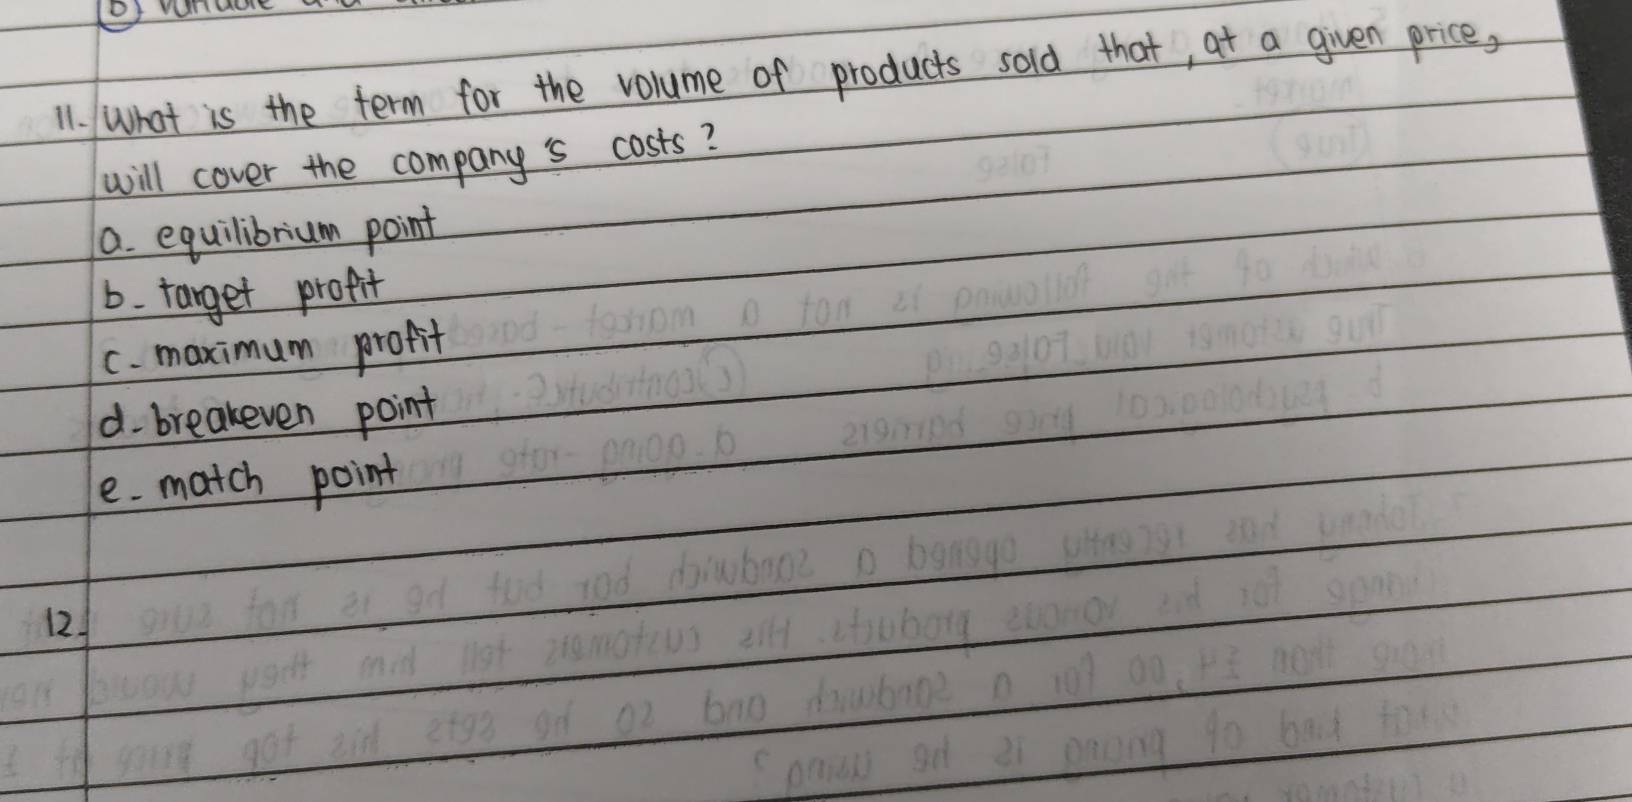 11. What is the term for the volume of products sold that, at a given price,
will cover the company's costs?
a. equilibrium point
b. target profit
c. maximum profit
d. breakeven point
e. match point
12.